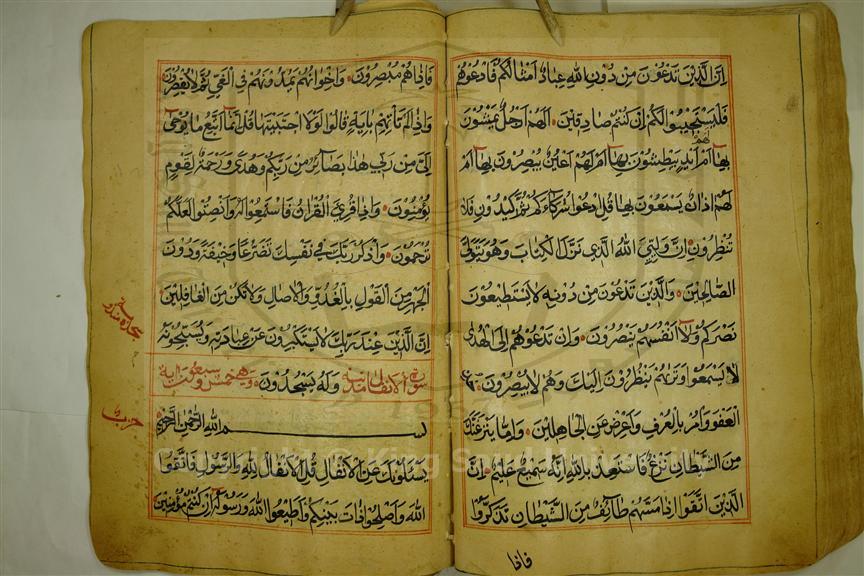 ان الذين تدعون من دون الله عباد امثالكم فادعوهم
فليستجيبوا لكم ان كنتم صادقين الهم ارجل يمشون
بها ام لهم ايد يبطشون بها ام لهم اعين يبصرون بها ام
لهم اذان يسمعون بها قل ادعوا شركاءكم ثم كيدون فلا
تنظرون ان وليي الله الذي نزل الكتاب وهو يتولى
الصالحين والذين تدعون من دونه لا يستطيعون
نصركم ولا انفسهم ينصرون وان تدعوهم الى الهدى
لا يسمعوا وتراهم ينظرون اليك وهم لا يبصرون خذ
العفو وامر بالعرف واعرض عن الجاهلين واما ينزغنك
من الشيطان نزغ فاستعذ بالله انه سميع عليم ان
الذين اتقوا اذا مسهم طائف من الشيطان تذكروا
فاذا
فاذا هم مبصرون واخوانهم يمدونهم في الغي ثم لا يقصرون
واذا لم تاتهم باية قالوا لولا اجتبيتها قل انما اتبع ما يوحى
الي من ربي هذا بصائر من ربكم وهدى ورحمة لقوم
يؤمنون واذا قرئ القران فاستمعوا له وانصتوا لعلكم
ترحمون واذكر ربك في نفسك تضرعا وخيفة ودون
الجهر من القول بالغدو والاصال ولا تكن من الغافلين
ان الذين عند ربك لا يستكبرون عن عبادته ويسبحونه
وله يسجدون سورة الانفال مدنية وهي خمس وسبعون اية
بسم الله الرحمن الرحيم
يسئلونك عن الانفال قل الانفال لله والرسول فاتقوا
الله واصلحوا ذات بينكم واطيعوا الله ورسوله ان كنتم مؤمنين
حزب